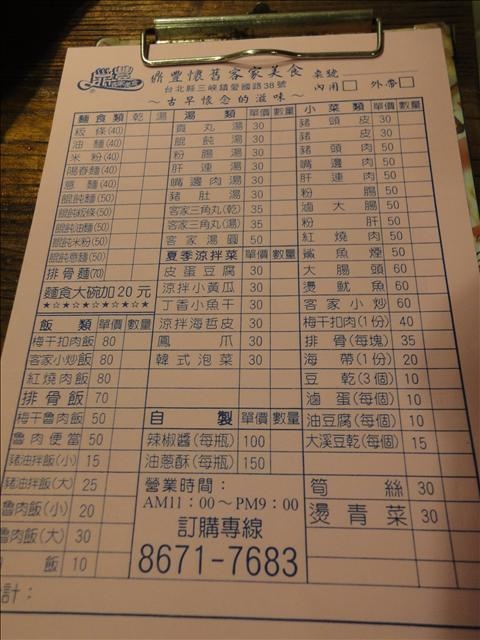 鼎豐懷舊客家美食 桌號
台北縣三峽鎮愛國路38號 內用□ 外帶□
～古早懷念的滋味～
麵食類 乾 湯
粄條(40)
油麵(40)
米粉(40)
陽春麵(40)
意麵(40)
餛飩麵(50)
餛飩粄條(50)
餛飩油麵(50)
餛飩米粉(50)
餛飩意麵(50)
排骨麵(70)
麵食大碗加20元
★☆★☆★☆★☆★☆★
飯類 單價 數量
梅干扣肉飯 80
客家小炒飯 80
紅燒肉飯 80
排骨飯 70
梅干魯肉飯 50
魯肉便當 50
豬油拌飯(小) 15
豬油拌飯(大) 25
魯肉飯(小) 20
魯肉飯(大) 30
飯 10
計：
湯類 單價 數量
貢丸湯 30
餛飩湯 30
粉腸湯 30
肝連湯 30
嘴邊肉湯 30
豬肚湯 30
客家三角丸(乾) 35
客家三角丸(湯) 35
客家湯圓 50
夏季涼拌菜 單價 數量
皮蛋豆腐 30
涼拌小黃瓜 30
丁香小魚干 30
涼拌海哲皮 30
鳳爪 30
韓式泡菜 30
自製 單價 數量
辣椒醬(每瓶) 100
油蔥酥(每瓶) 150
營業時間：
AM11：00～PM9：00
訂購專線
8671-7683
小菜類 單價 數量
豬頭皮 30
豬皮 30
豬頭肉 50
嘴邊肉 50
肝連肉 50
粉腸 50
滷大腸 50
粉肝 50
紅燒肉 50
鯊魚煙 50
大腸頭 60
燙魷魚 60
客家小炒 60
梅干扣肉(1份) 40
排骨(每塊) 35
海帶(1份) 20
豆乾(3個) 10
滷蛋(每個) 10
油豆腐(每個) 10
大溪豆乾(每個) 15
筍絲 30
燙青菜 30